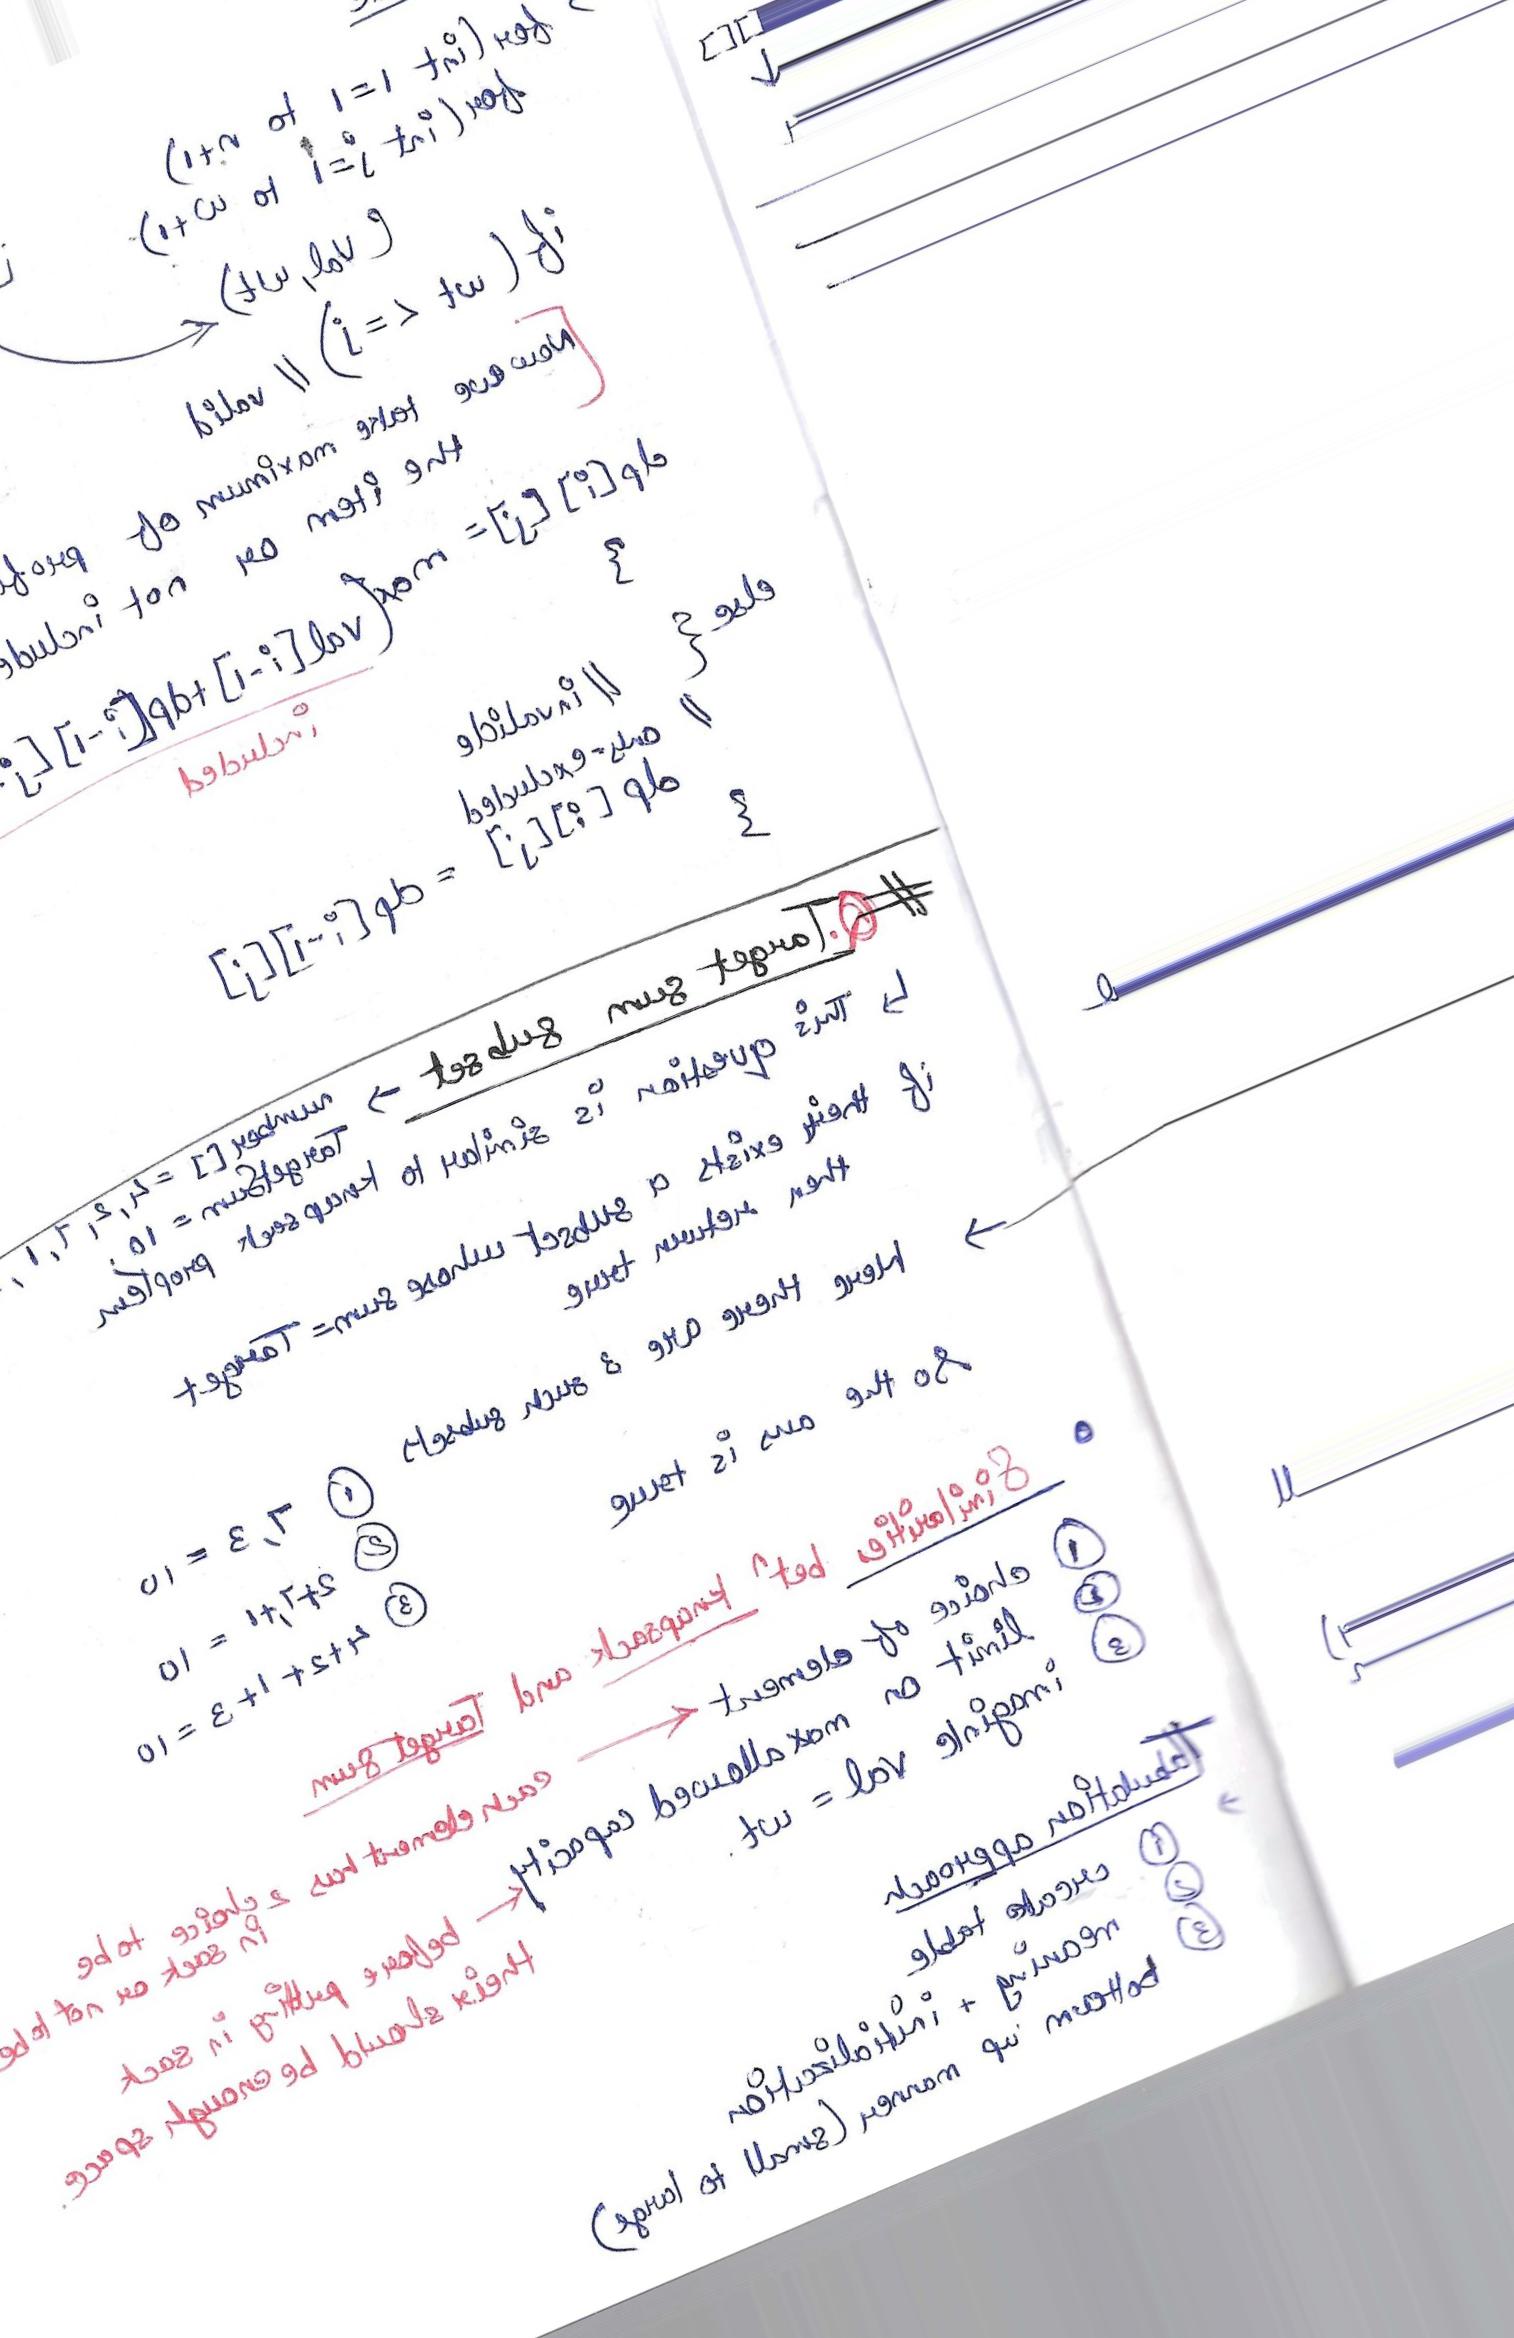 for(int i=1 to n+1)
for(int j=1 to W+1)
(val, wt)
if (wt <= j) // valid
now we take maximum of
the item or not
dp[i][j] = max(val[i-1]+dp[i-1][j
included
}
else {
// invalide
// ans-excluded
dp[i][j] = dp[i-1][j]
}
# Q. Target sum subset → number[] = 4, 2, 7, 1,
TargetSum = 10;
↳ This question is similar to knapsack problem
if their exists a subset whose sum = Target
then return true
→ Here there are 3 such subsets
① 7, 3 = 10
② 2+7+1 = 10
③ 4+2+1+3 = 10
So the ans is true
• Similarities betn Knapsack and Target sum
① choice of element ← each element has 2 choice to be
in sack or not to be
② limit on max allowed capacity ← before putting in sack
their should be enough space.
③ imagine val = wt.
Tabulation approach
① create table
② meaning + initialisation
③ bottom up manner (small to large)